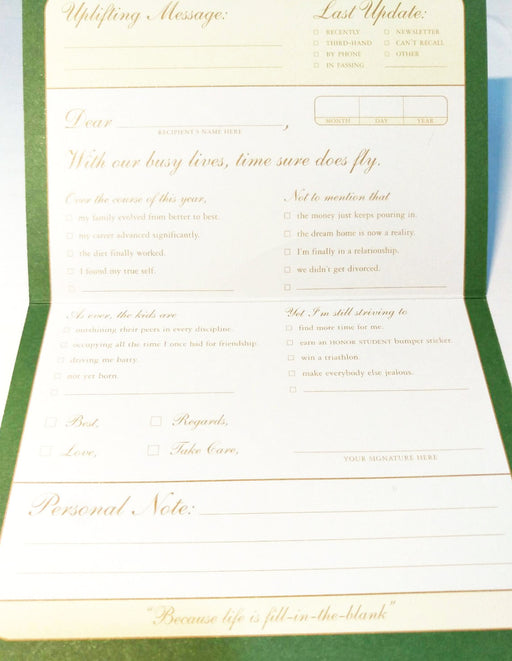 Uplifting Message:
Last Update:
RECENTLY
NEWSLETTER
THIRD-HAND
CAN'T RECALL
BY PHONE
OTHER
IN PASSING
Dear ,
RECIPIENT'S NAME HERE
MONTH DAY YEAR
With our busy lives, time sure does fly.
Over the course of this year,
my family evolved from better to best.
my career advanced significantly.
the diet finally worked.
I found my true self.
Not to mention that
the money just keeps pouring in.
the dream home is now a reality.
I'm finally in a relationship.
we didn't get divorced.
As ever, the kids are
outshining their peers in every discipline.
occupying all the time I once had for friendship.
driving me batty.
not yet born.
Yet I'm still striving to
find more time for me.
earn an HONOR STUDENT bumper sticker.
win a triathlon.
make everybody else jealous.
Best,
Regards,
Love,
Take Care,
YOUR SIGNATURE HERE
Personal Note:
"Because life is fill-in-the-blank"